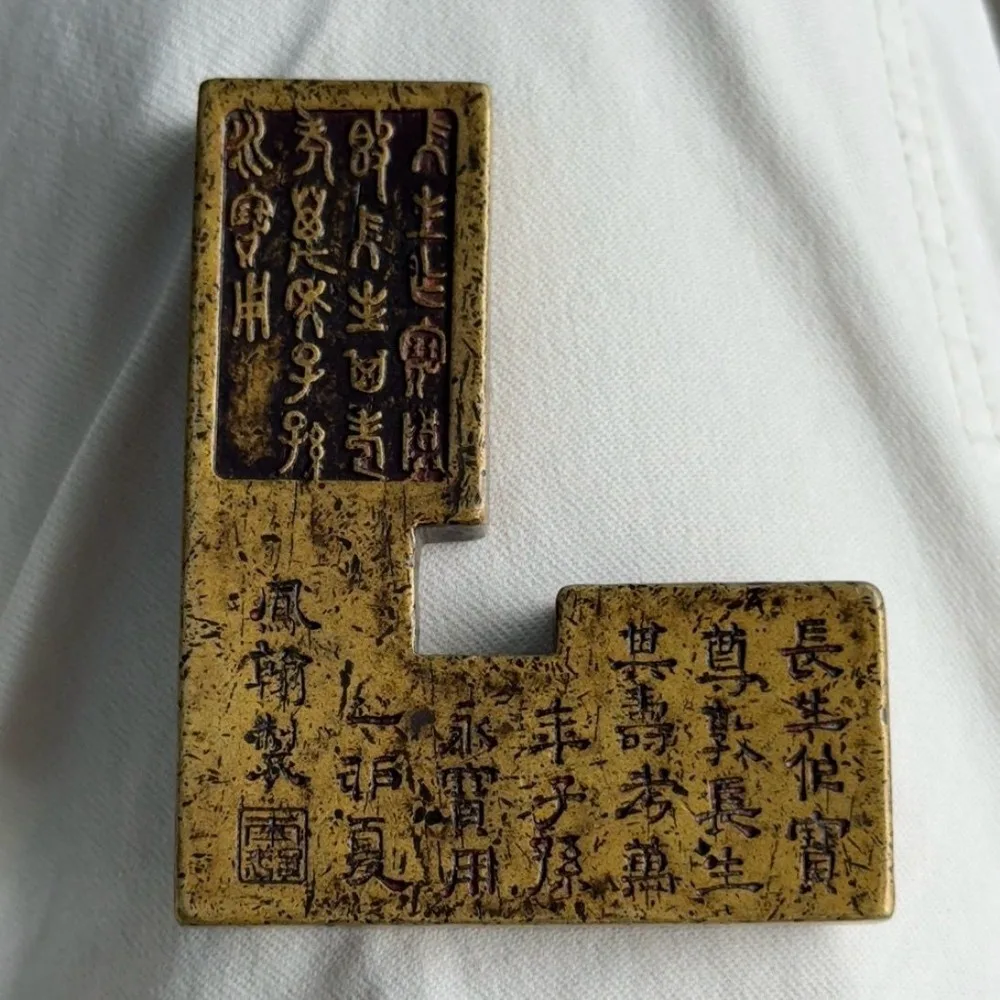 長生乍寶尊
敦長生其壽
考萬年子孫
永寶用
長生作寶
尊敦長生
其壽考萬
年子孫
永寶用
乙卯夏
鳳翰製